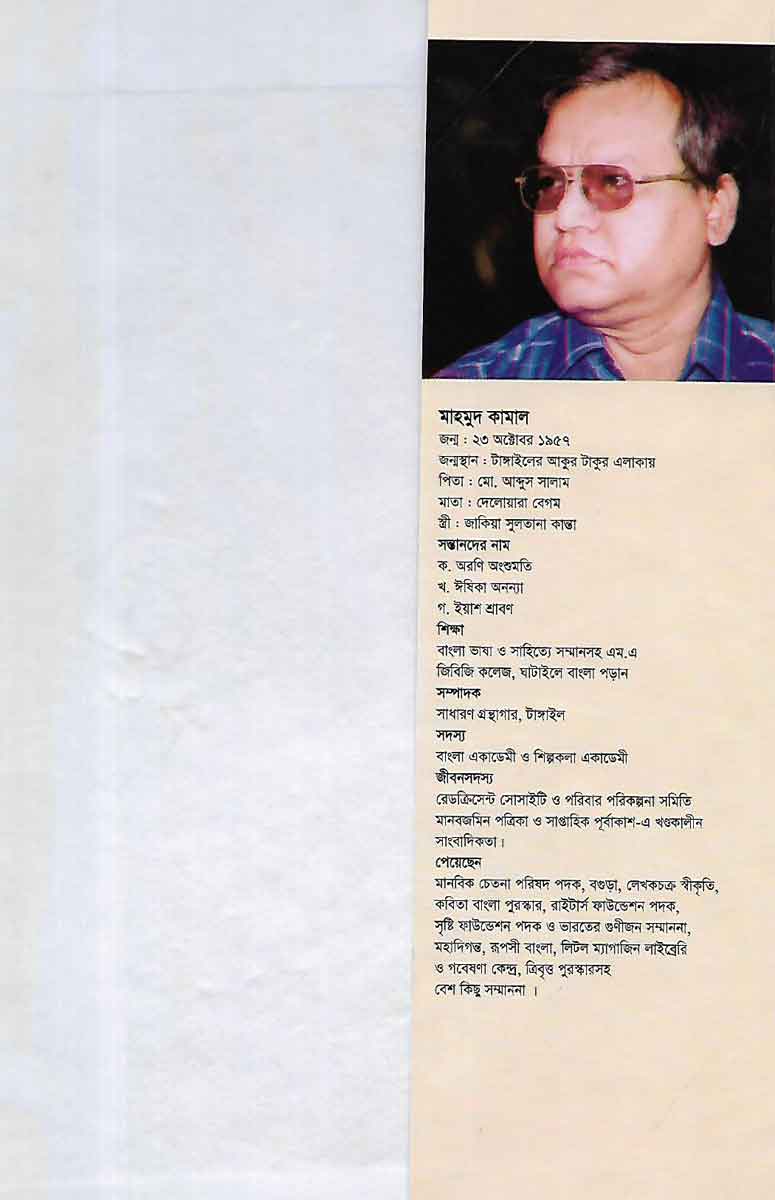 মাহমুদ কামাল
জন্ম : ২৩ অক্টোবর ১৯৫৭
জন্মস্থান : টাঙ্গাইলের আকুর টাকুর এলাকায়
পিতা : মো. আব্দুস সালাম
মাতা : দেলোয়ারা বেগম
স্ত্রী : জাকিয়া সুলতানা কান্তা
সন্তানদের নাম
ক. অরণি অংশুমতি
খ. ঈষিকা অনন্যা
গ. ইয়াশ শ্রাবণ
শিক্ষা
বাংলা ভাষা ও সাহিত্যে সম্মানসহ এম.এ
জিবিজি কলেজ, ঘাটাইলে বাংলা পড়ান
সম্পাদক
সাধারণ গ্রন্থাগার, টাঙ্গাইল
সদস্য
বাংলা একাডেমী ও শিল্পকলা একাডেমী
জীবনসদস্য
রেডক্রিসেন্ট সোসাইটি ও পরিবার পরিকল্পনা সমিতি
মানবজমিন পত্রিকা ও সাপ্তাহিক পূর্বাকাশ-এ খণ্ডকালীন
সাংবাদিকতা।
পেয়েছেন
মানবিক চেতনা পরিষদ পদক, বগুড়া, লেখকচক্র স্বীকৃতি,
কবিতা বাংলা পুরস্কার, রাইটার্স ফাউন্ডেশন পদক,
সৃষ্টি ফাউন্ডেশন পদক ও ভারতের গুণীজন সম্মাননা,
মহাদিগন্ত, রূপসী বাংলা, লিটল ম্যাগাজিন লাইব্রেরি
ও গবেষণা কেন্দ্র, ত্রিবৃত্ত পুরস্কারসহ
বেশ কিছু সম্মাননা ।